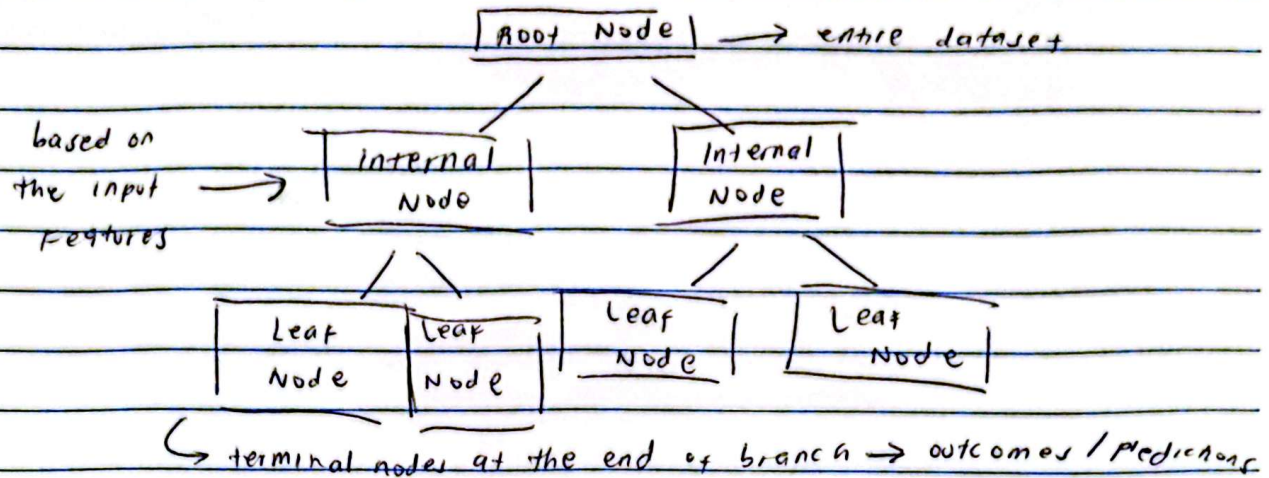 Root Node → entire dataset
based on
the input →
Features
Internal
Node
Internal
Node
Leaf
Node
Leaf
Node
Leaf
Node
Leaf
Node
↳ terminal nodes at the end of branch → outcomes / predictions